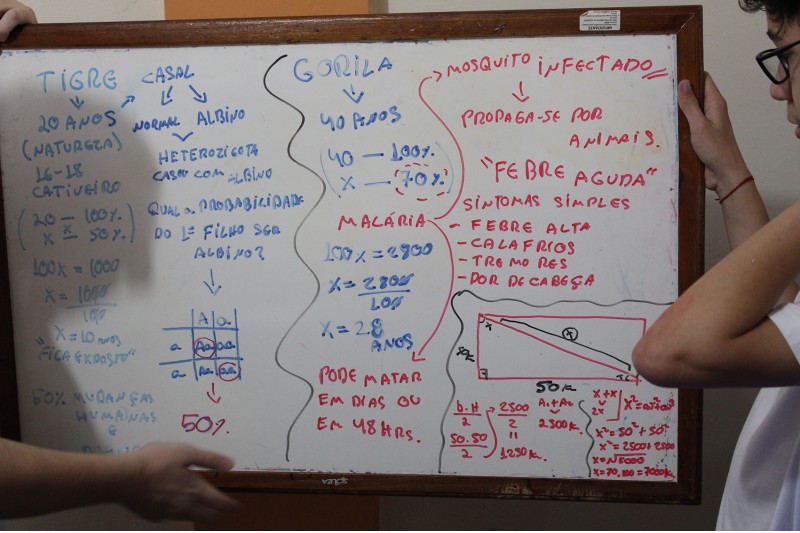 TIGRE
20 ANOS
(NATUREZA)
16-18
CATIVEIRO
20 — 100%
x — 50%
100x = 1000
x = 1000
100
"x = 10 ANOS
FICA EXPOSTO"
50% MUDANÇAS
HUMANAS
E
CASAL
NORMAL ALBINO
HETEROZIGOTA
CASA COM ALBINO
QUAL a PROBABILIDADE
DO 1º FILHO SER
ALBINO?
A a
a Aa aa
a Aa aa
50%
GORILA
40 ANOS
40 — 100%
x — 70%
MALÁRIA
100x = 2800
x = 2800
100
x = 28
ANOS
PODE MATAR
EM DIAS OU
EM 48 HRS.
MOSQUITO INFECTADO
PROPAGA-SE POR
ANIMAIS.
"FEBRE AGUDA"
SINTOMAS SIMPLES
- FEBRE ALTA
- CALAFRIOS
- TREMORES
- DOR DE CABEÇA
x
50k
50k
b.H
2
50.50
2
2500
2
=
1250k.
A₁+A₂
2500k.
x+x
2x
x²=50²+50²
x²=2500+2500
x=√5000
x=70.100=7000k